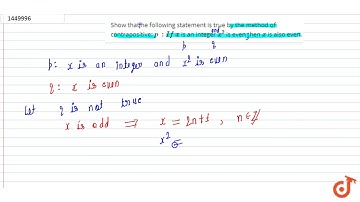 1449996
Show that the following statement is true by the method of
contrapositive: p : If x is an integer and x² is even then x is also even.
p q
p: x is an integer and x² is even
q: x is even
Let q is not true
x is odd ⟹ x = 2n+1 , n∈ℤ
x²
doubtnut